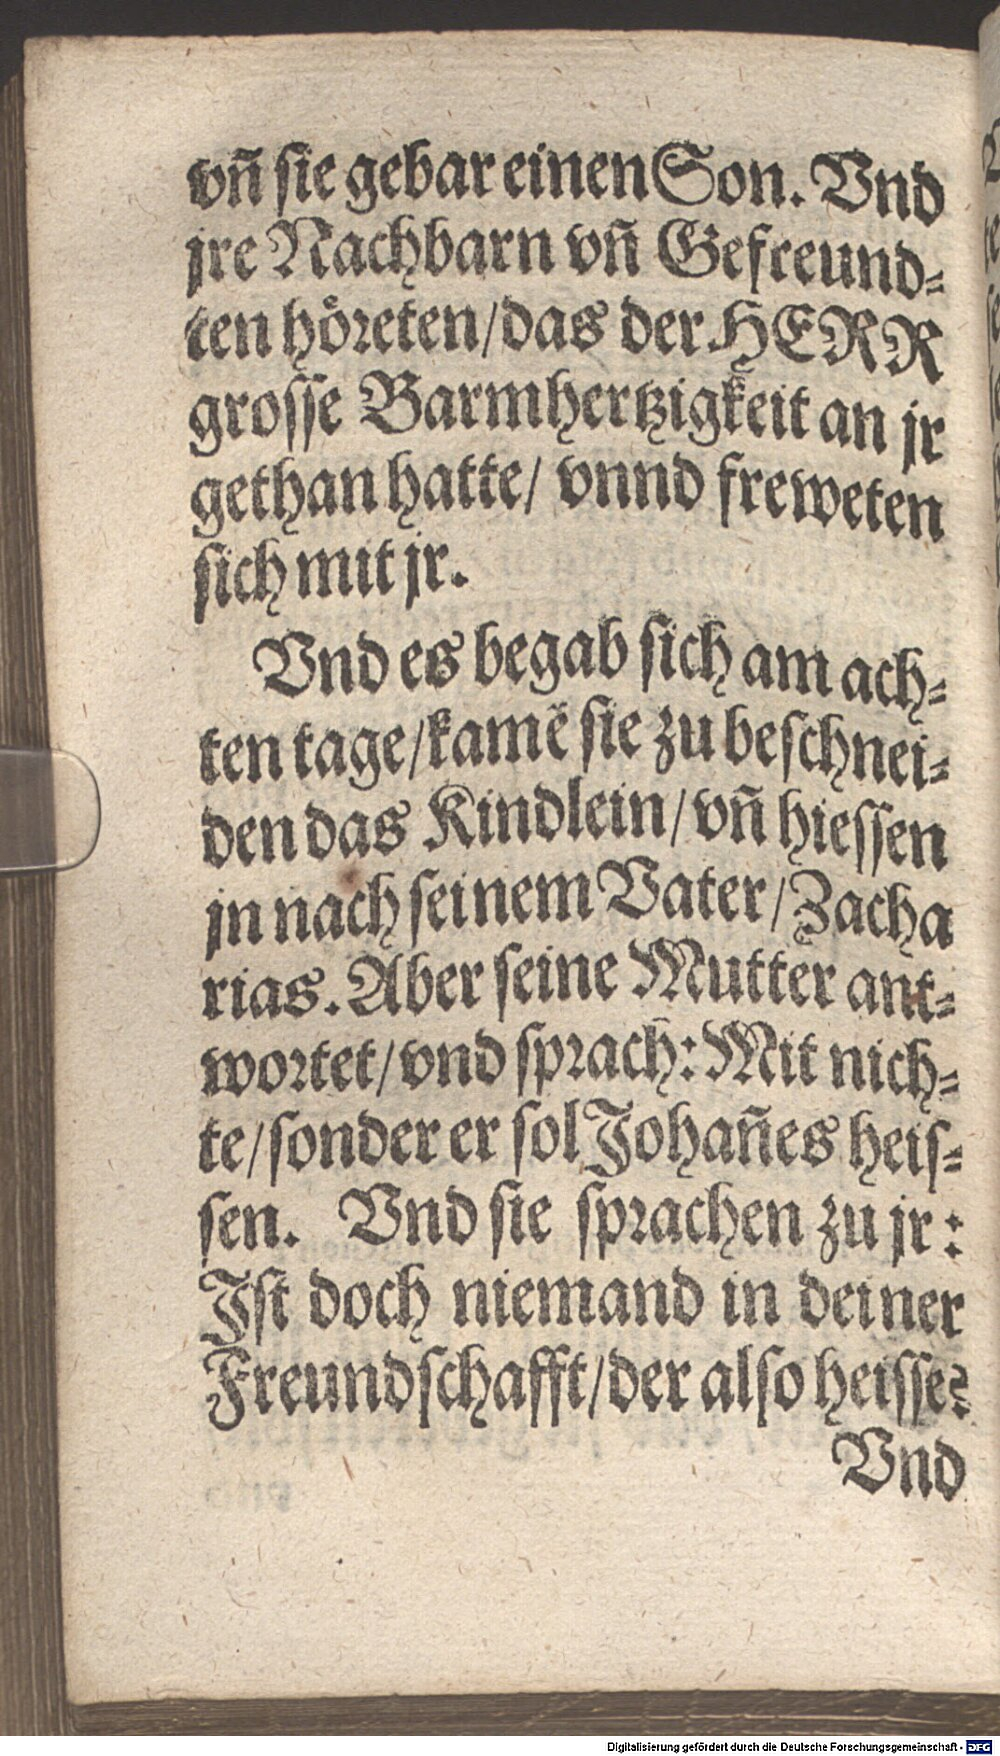 vn̄ sie gebar einen Son. Vnd
jre Nachbarn vn̄ Gefreund-
ten hoͤreten/das der HERR
grosse Barmhertzigkeit an jr
gethan hatte/ vnnd freweten
sich mit jr.
Vnd es begab sich am ach-
ten tage/kamē sie zu beschnei-
den das Kindlein/vn̄ hiessen
jn nach seinem Vater/Zacha
rias. Aber seine Mutter ant-
wortet/vnd sprach: Mit nich-
te/sonder er sol Johan̄es heis-
sen. Vnd sie sprachen zu jr:
Ist doch niemand in deiner
Freundschafft/der also heisse?
Vnd
Digitalisierung gefördert durch die Deutsche Forschungsgemeinschaft - DFG